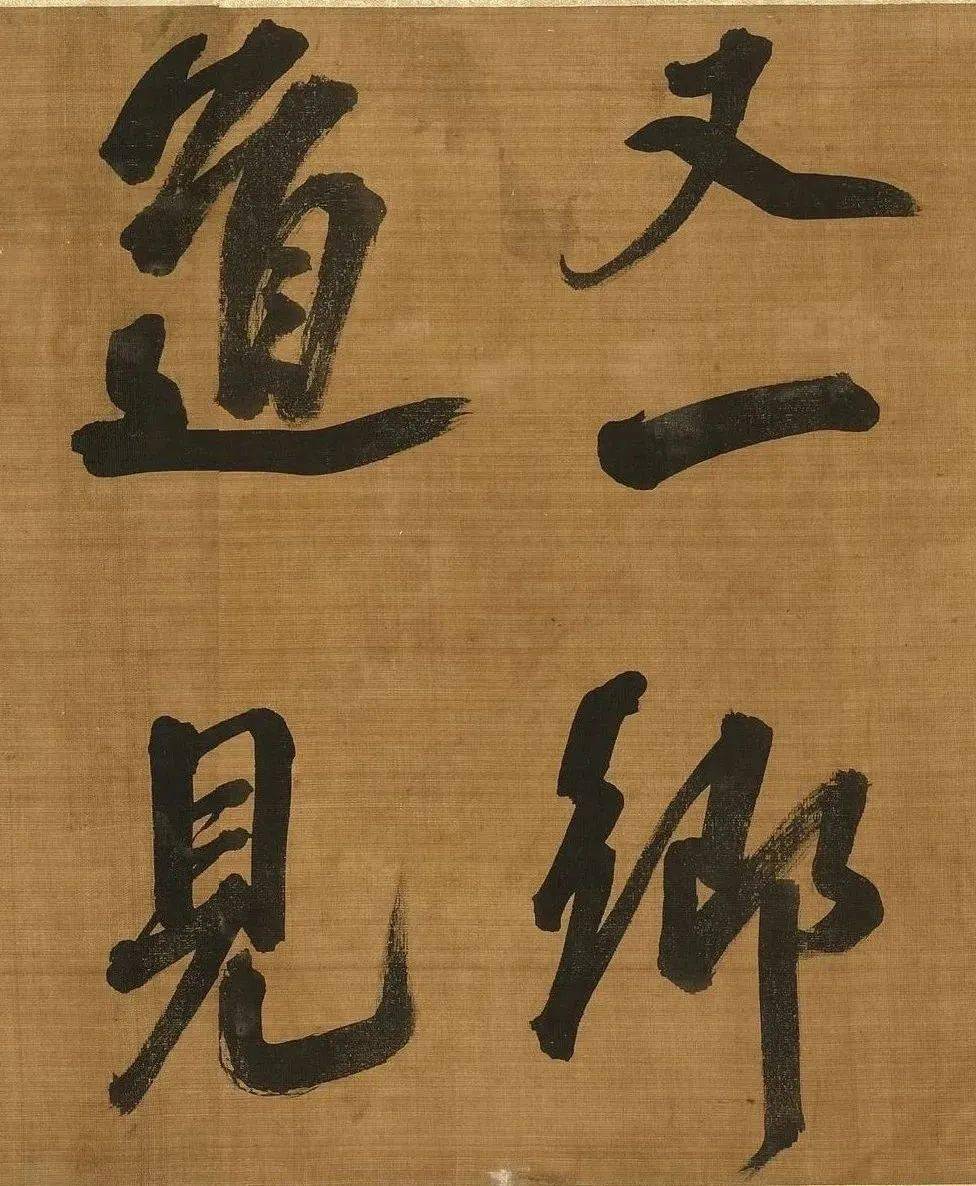 又一鄉
道見